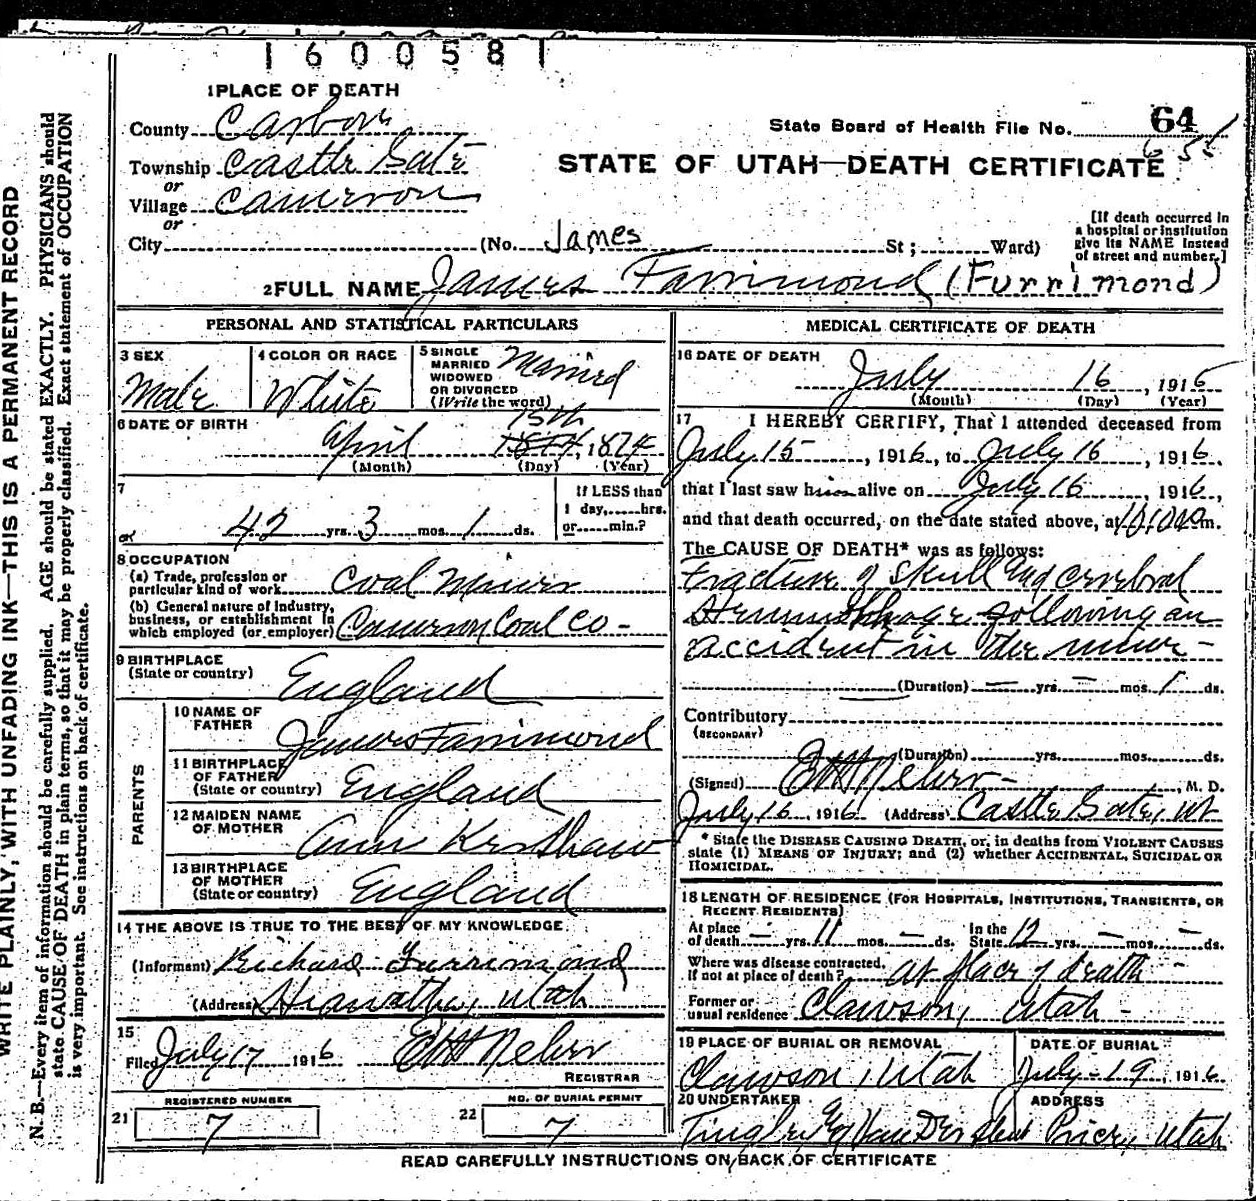 1600581
1 PLACE OF DEATH
County Carbon
State Board of Health File No. 64
655
Township Castle Gate
STATE OF UTAH—DEATH CERTIFICATE
or
Village Cameron
or
City (No. James St; Ward)
[If death occurred in a hospital or institution give its NAME instead of street and number.]
2 FULL NAME James Farrimond (Furrimond)
PERSONAL AND STATISTICAL PARTICULARS
3 SEX
Male
4 COLOR OR RACE
White
5 SINGLE MARRIED WIDOWED OR DIVORCED (Write the word)
Married
6 DATE OF BIRTH
April 15th 1874, 1874
(Month) (Day) (Year)
7
or 42 yrs. 3 mos. 1 ds.
If LESS than
1 day, hrs.
or min.?
8 OCCUPATION
(a) Trade, profession or particular kind of work Coal Miner
(b) General nature of industry, business, or establishment in which employed (or employer) Cameron Coal Co -
9 BIRTHPLACE
(State or country) England
PARENTS
10 NAME OF FATHER James Farrimond
11 BIRTHPLACE OF FATHER (State or country) England
12 MAIDEN NAME OF MOTHER Ann Kershaw
13 BIRTHPLACE OF MOTHER (State or country) England
14 THE ABOVE IS TRUE TO THE BEST OF MY KNOWLEDGE
(Informant) Richard Furrimond
(Address) Hiawatha, Utah
15
Filed July 17 1916
REGISTRAR
21 REGISTERED NUMBER
7
22 NO. OF BURIAL PERMIT
7
MEDICAL CERTIFICATE OF DEATH
16 DATE OF DEATH
July 16, 1916
(Month) (Day) (Year)
17 I HEREBY CERTIFY, That I attended deceased from
July 15, 1916, to July 16, 1916.
that I last saw him alive on July 16, 1916,
and that death occurred, on the date stated above, at m.
The CAUSE OF DEATH* was as follows:
Fracture of Skull and Cerebral
Hemorrhage following an
accident in the mine -
(Duration) — yrs. — mos. 1 ds.
Contributory
(SECONDARY)
(Duration) yrs. mos. ds.
(Signed) M. D.
July 16, 1916 (Address) Castle Gate, Ut
* State the DISEASE CAUSING DEATH, or, in deaths from VIOLENT CAUSES
state (1) MEANS OF INJURY; and (2) whether ACCIDENTAL, SUICIDAL OR
HOMICIDAL.
18 LENGTH OF RESIDENCE (FOR HOSPITALS, INSTITUTIONS, TRANSIENTS, OR
RECENT RESIDENTS)
At place of death — yrs. 11 mos. — ds. In the State 12 yrs. — mos. — ds.
Where was disease contracted, if not at place of death? at place of death -
Former or usual residence Clawson, Utah -
19 PLACE OF BURIAL OR REMOVAL
Clawson, Utah
DATE OF BURIAL
July - 19, 1916
20 UNDERTAKER
ADDRESS
Price, Utah
READ CAREFULLY INSTRUCTIONS ON BACK OF CERTIFICATE
WRITE PLAINLY, WITH UNFADING INK—THIS IS A PERMANENT RECORD
N. B.—Every item of information should be carefully supplied. AGE should be stated EXACTLY. PHYSICIANS should
state CAUSE OF DEATH in plain terms, so that it may be properly classified. Exact statement of OCCUPATION
is very important. See instructions on back of certificate.